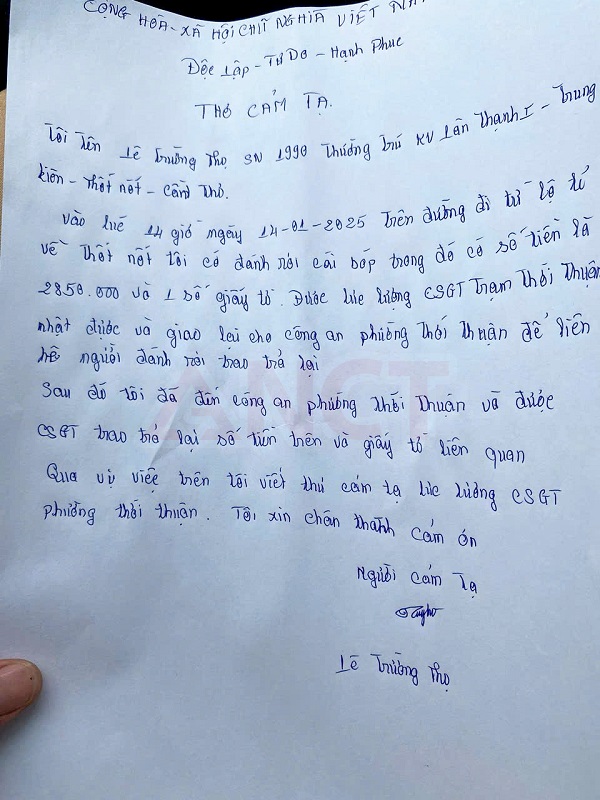 CỘNG HÒA - XÃ HỘI CHỦ NGHĨA VIỆT NA
Độc Lập - Tự Do - Hạnh Phúc
THƠ CẢM TẠ.
Tôi tên Lê Trường Thọ SN 1990 Thường trú KV Lân Thạnh I - Trung
kiên - Thốt nốt - Cần Thơ.
Vào lúc 14 giờ ngày 14-01-2025 trên đường đi từ lộ tẻ
về Thốt nốt tôi có đánh rơi cái bóp trong đó có số tiền là
2850.000 và 1 số giấy tờ. Được lực lượng CSGT Trạm Thới Thuận
nhặt được và giao lại cho công an phường thới thuận để liên
hệ người đánh rơi trao trả lại
ANCT
Sau đó tôi đã đến công an phường thới thuận và được
CSGT trao trả lại số tiền trên và giấy tờ liên quan
Qua vụ việc trên tôi viết thư cám tạ lực lượng CSGT
phường thới thuận. Tôi xin chân thành cám ơn
Người cám tạ
Lê Trường Thọ